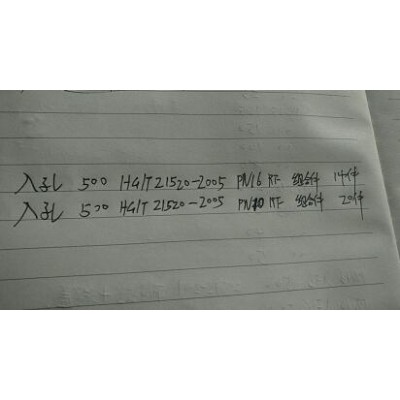 入孔 500 HG/T 21520-2005 PN16 RF 组合件 14件
入孔 500 HG/T 21520-2005 PN10 RF 组合件 20件